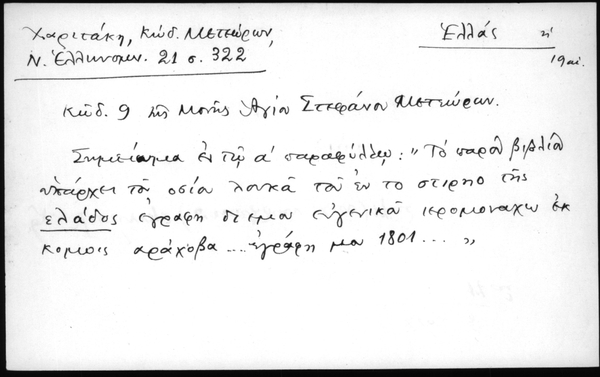 Χαριτάκη, Κώδ. Μετεώρων,
Ν. Ἑλληνομν. 21 σ. 322
Ἑλλάς ἡ
19 αἰ.
Κώδ. 9 τῆς Μονῆς Ἁγίου Στεφάνου Μετεώρων.
Σημείωμα ἐν τῷ α' παραφύλλῳ: "Τὸ παρὸν βιβλίον
ὑπάρχει τοῦ οσίου λουκᾶ τοῦ ἐν το στιρηο τῆς
ελάδος ἐγράφη δι εμου εὐγενικοῦ ιερομοναχω ἐκ
κομις αράχοβα ... ἐγράφη μου 1801 ... "